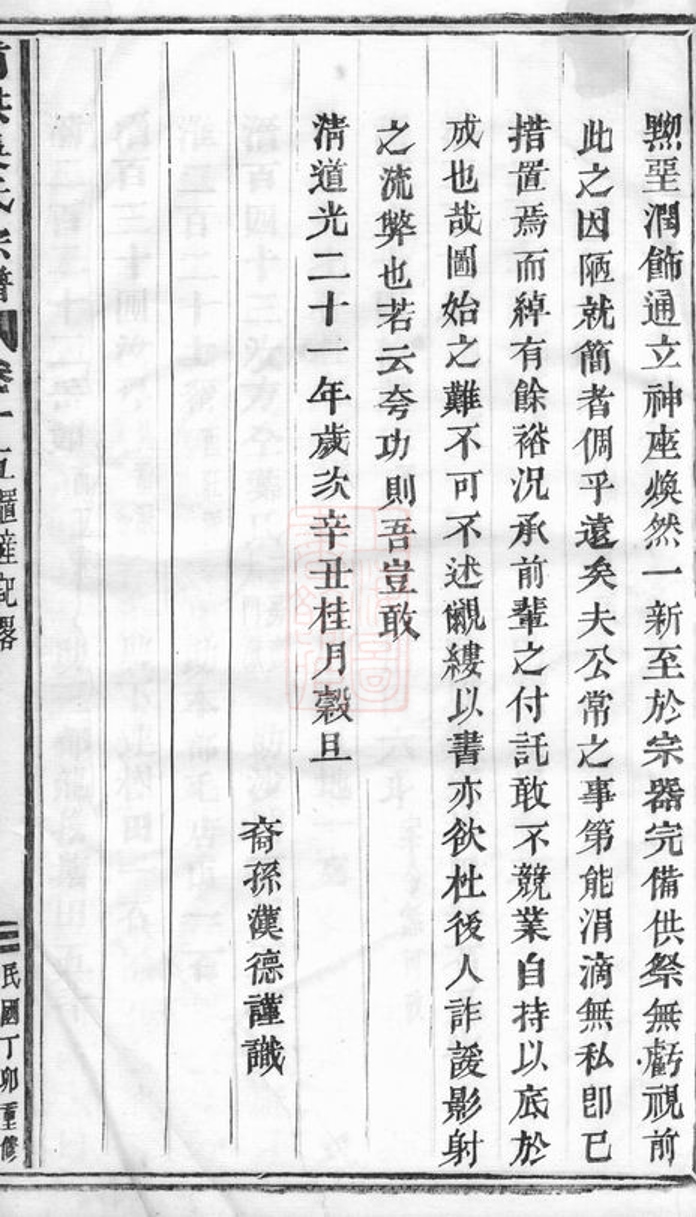 黝堊潤飾通立神座煥然一新至於宗器完備供祭無虧視前
此之因陋就簡者倜乎遠矣夫公常之事第能涓滴無私卽已
措置焉而綽有餘裕況承前輩之付託敢不競業自持以底於
成也哉圖始之難不可不述覼縷以書亦欲杜後人詐諼影射
之流弊也若云夸功則吾豈敢
淸道光二十一年歲次辛丑桂月穀旦
裔孫漢德謹識
吳氏宗譜 卷十五 產記畧
民國丁卯重修